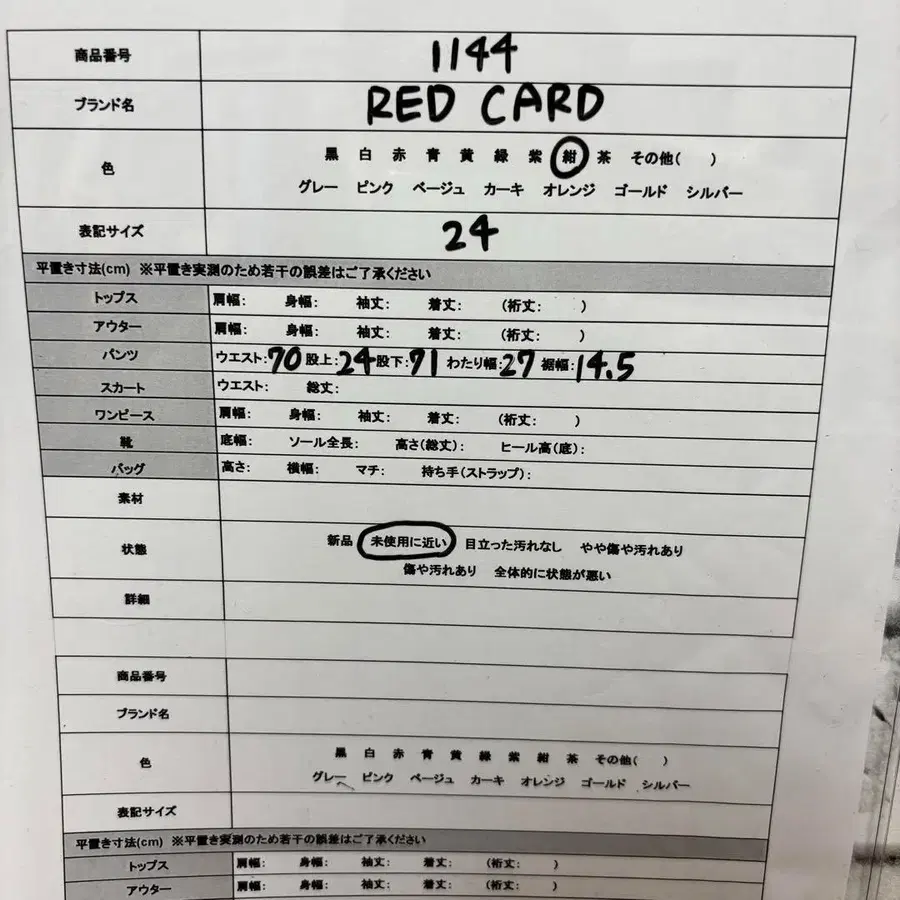 商品番号 1144
ブランド名 RED CARD
色 黒 白 赤 青 黄 緑 紫 紺 茶 その他( )
グレー ピンク ベージュ カーキ オレンジ ゴールド シルバー
表記サイズ 24
平置き寸法(cm) ※平置き実測のため若干の誤差はご了承ください
トップス 肩幅: 身幅: 袖丈: 着丈: (裄丈: )
アウター 肩幅: 身幅: 袖丈: 着丈: (裄丈: )
パンツ ウエスト:70 股上:24 股下:71 わたり幅:27 裾幅:14.5
スカート ウエスト: 総丈:
ワンピース 肩幅: 身幅: 袖丈: 着丈: (裄丈: )
靴 底幅: ソール全長: 高さ(総丈): ヒール高(底):
バッグ 高さ: 横幅: マチ: 持ち手(ストラップ):
素材
状態 新品 未使用に近い 目立った汚れなし やや傷や汚れあり
傷や汚れあり 全体的に状態が悪い
詳細
商品番号
ブランド名
色 黒 白 赤 青 黄 緑 紫 紺 茶 その他( )
グレー ピンク ベージュ カーキ オレンジ ゴールド シルバー
表記サイズ
平置き寸法(cm) ※平置き実測のため若干の誤差はご了承ください
トップス 肩幅: 身幅: 袖丈: 着丈: (裄丈: )
アウター 肩幅: 身幅: 袖丈: 着丈: (裄丈: )